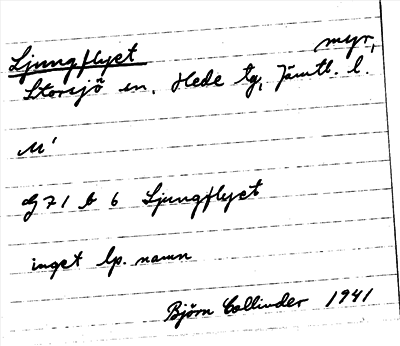 Ljungflyet myr,
Storsjö sn. Hede tg, Jämtl. l.
M'
dg 71 b 6 Ljungflyet
inget lp. namn
Björn Collinder 1941